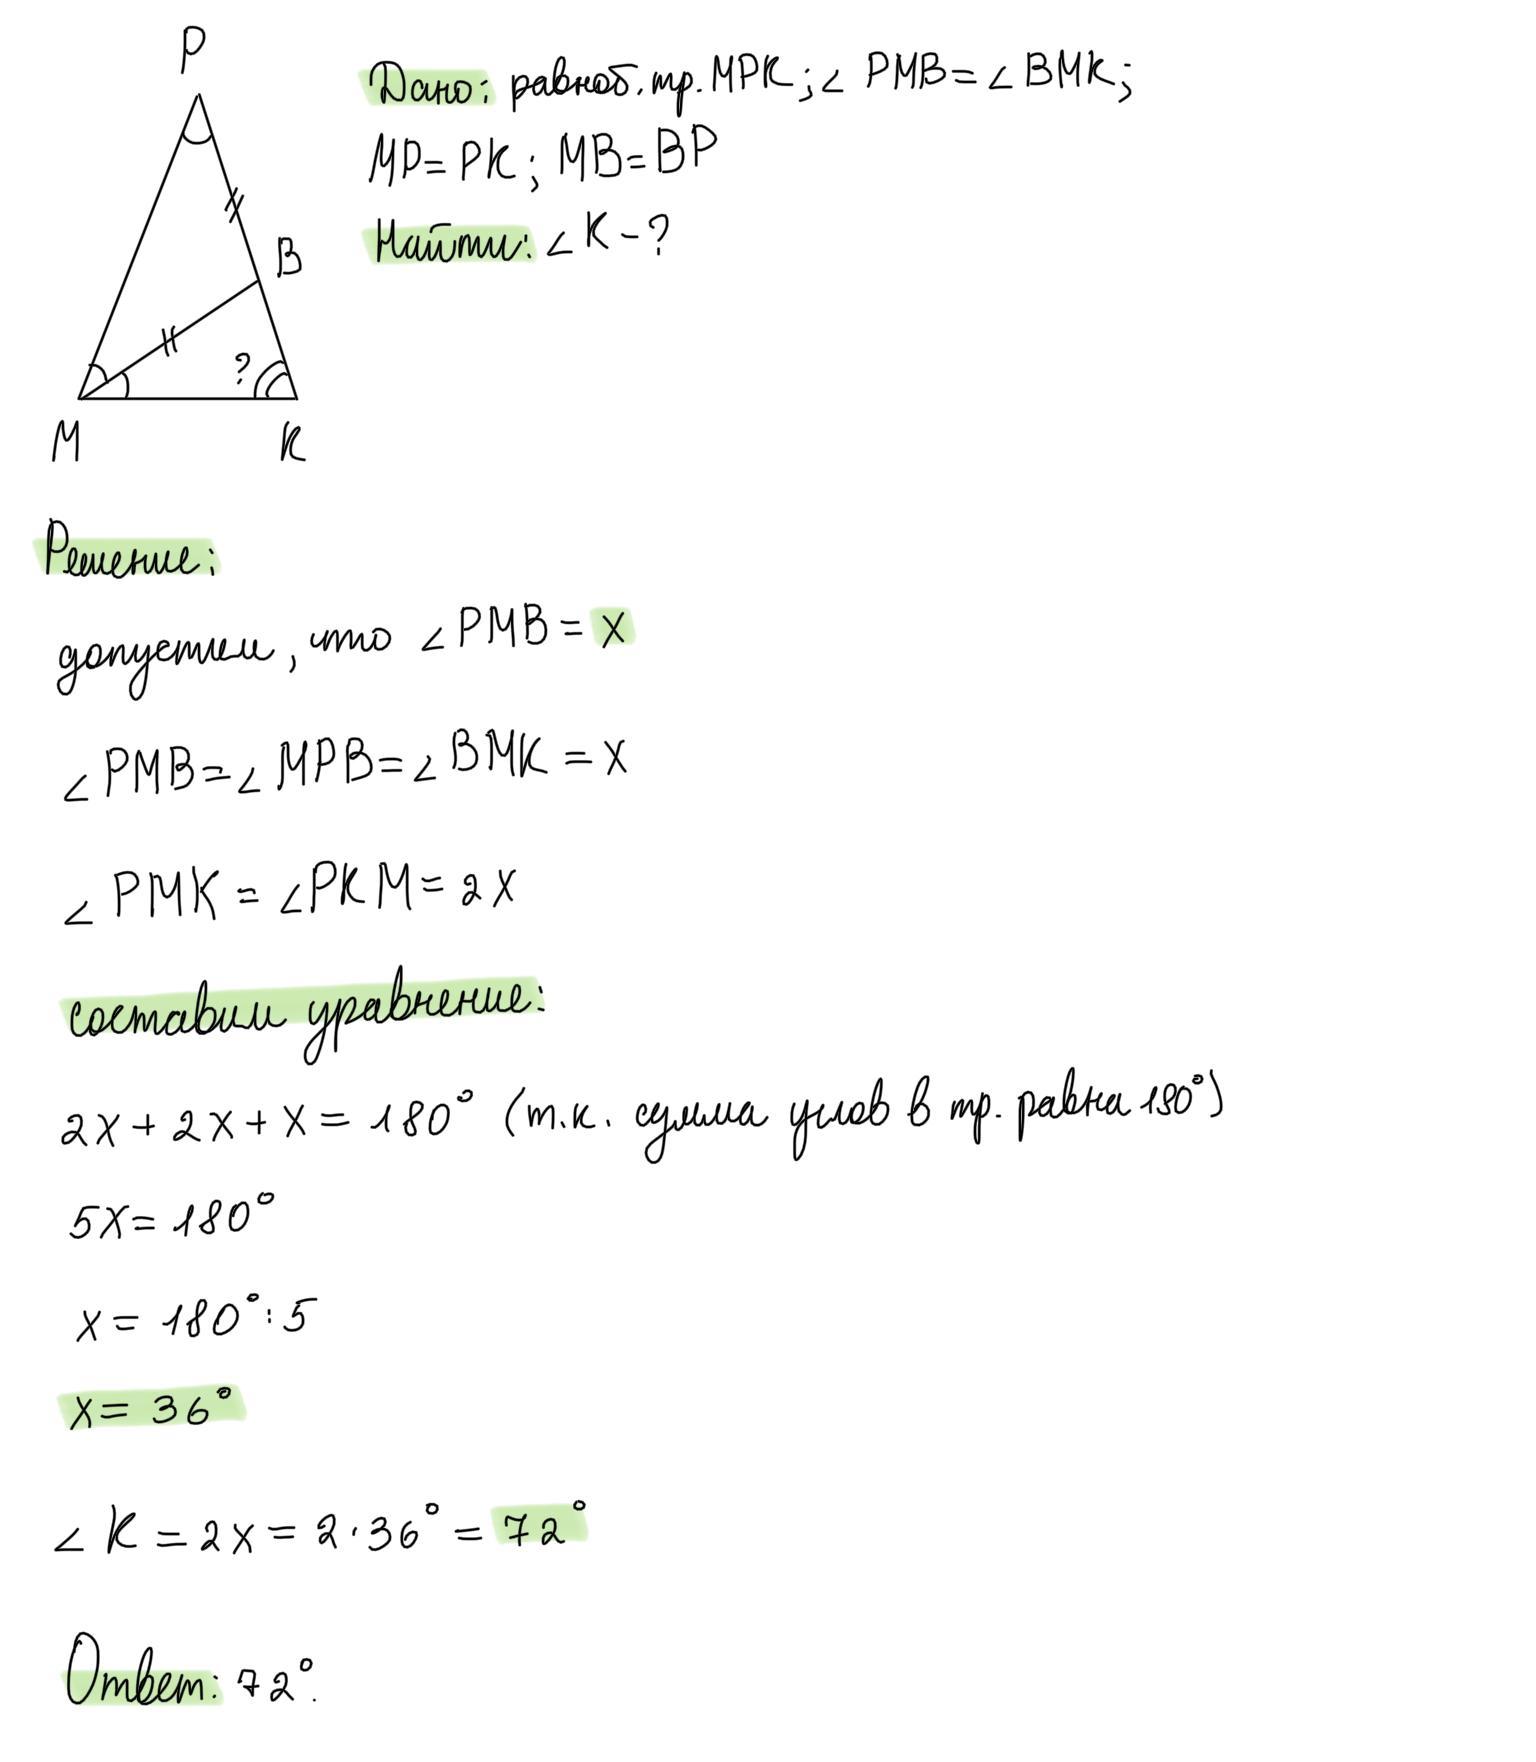 P
Дано: равноб. тр. МРК; ∠ PMB = ∠ BMK;
MP = PK; MB = BP
Найти: ∠ K - ?
B
?
M
K
Решение:
допустим, что ∠ PMB = x
∠ PMB = ∠ MPB = ∠ BMK = x
∠ PMK = ∠ PKM = 2x
составим уравнение:
2x + 2x + x = 180° (т.к. сумма углов в тр. равна 180°)
5x = 180°
x = 180° : 5
x = 36°
∠ K = 2x = 2 · 36° = 72°
Ответ: 72°.